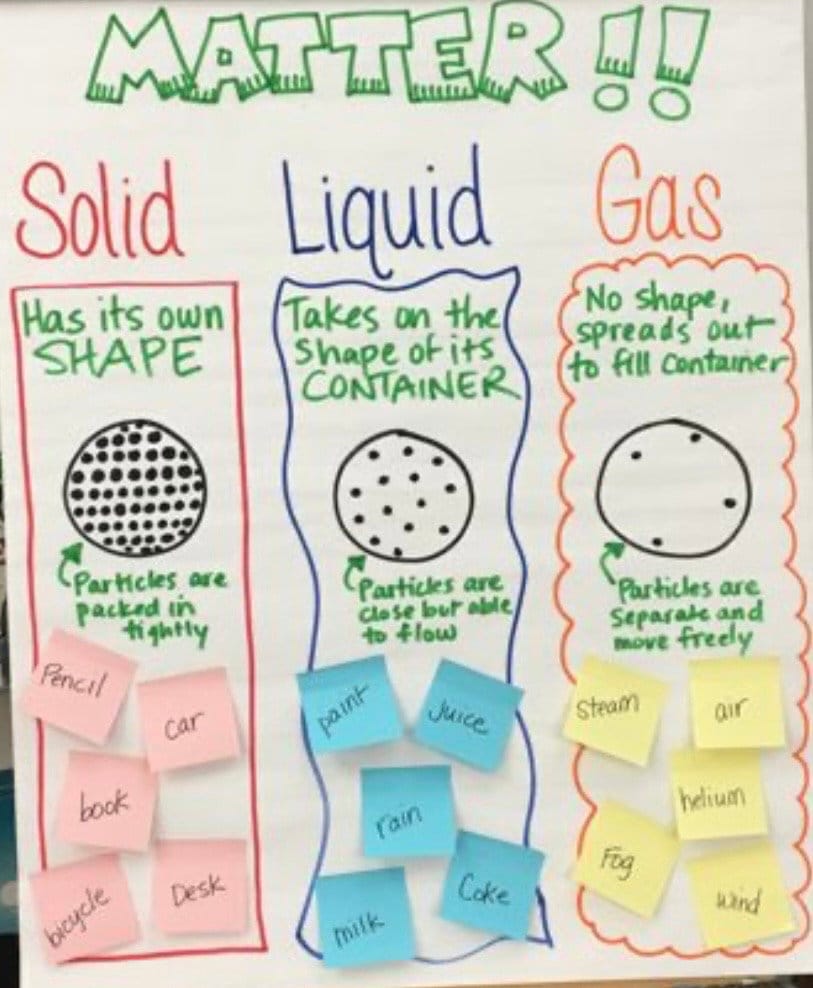 MATTER!!
Solid
Has its own
SHAPE
Particles are
packed in
tightly
Pencil
car
book
bicycle
Desk
Liquid
Takes on the
Shape of its
CONTAINER
Particles are
close but able
to flow
paint
Juice
rain
milk
Coke
Gas
No shape,
spreads out
to fill container
Particles are
Separate and
move freely
Steam
air
helium
Fog
wind